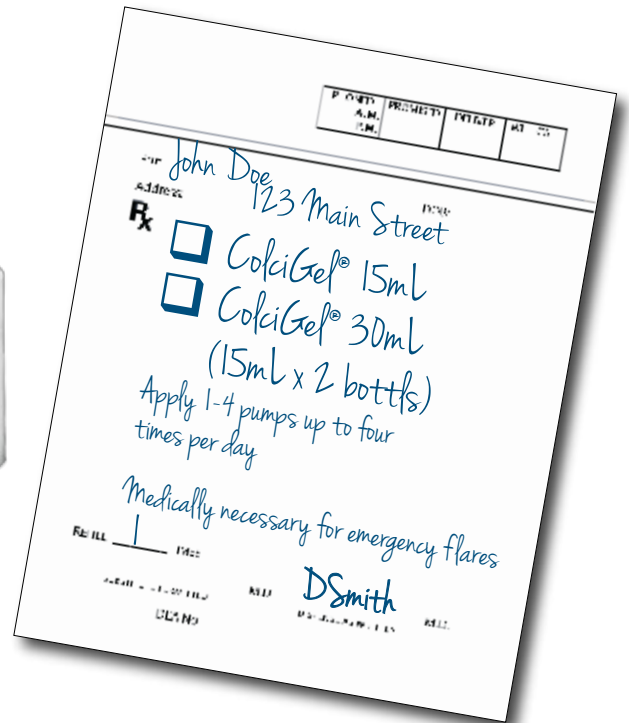 John Doe
Address 123 Main Street
Rx
ColciGel® 15mL
ColciGel® 30mL
(15mL x 2 bottls)
Apply 1-4 pumps up to four
times per day
Medically necessary for emergency flares
REFILL 1
DSmith
M.D. M.D.